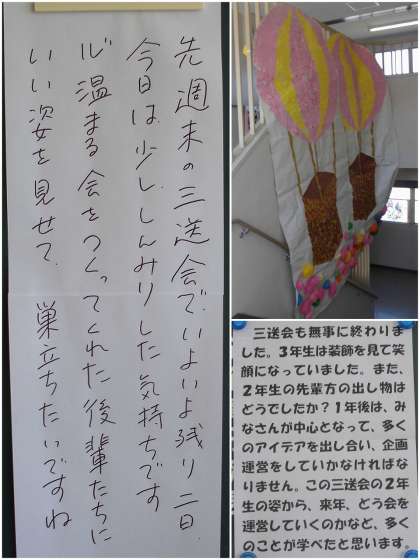 先週末の三送会で、いよいよ残り二日。
今日は、少し、しんみりした気持ちです
心温まる会をつくってくれた後輩たちに
いい姿を見せて、巣立ちたいですね
三送会も無事に終わりま
した。3年生は装飾を見て笑
顔になっていました。また、
2年生の先輩方の出し物は
どうでしたか？1年後は、み
なさんが中心となって、多く
のアイデアを出し合い、企画
運営をしていかなければな
りません。この三送会の2年
生の姿から、来年、どう会を
運営していくのかなど、多く
のことが学べたと思います。